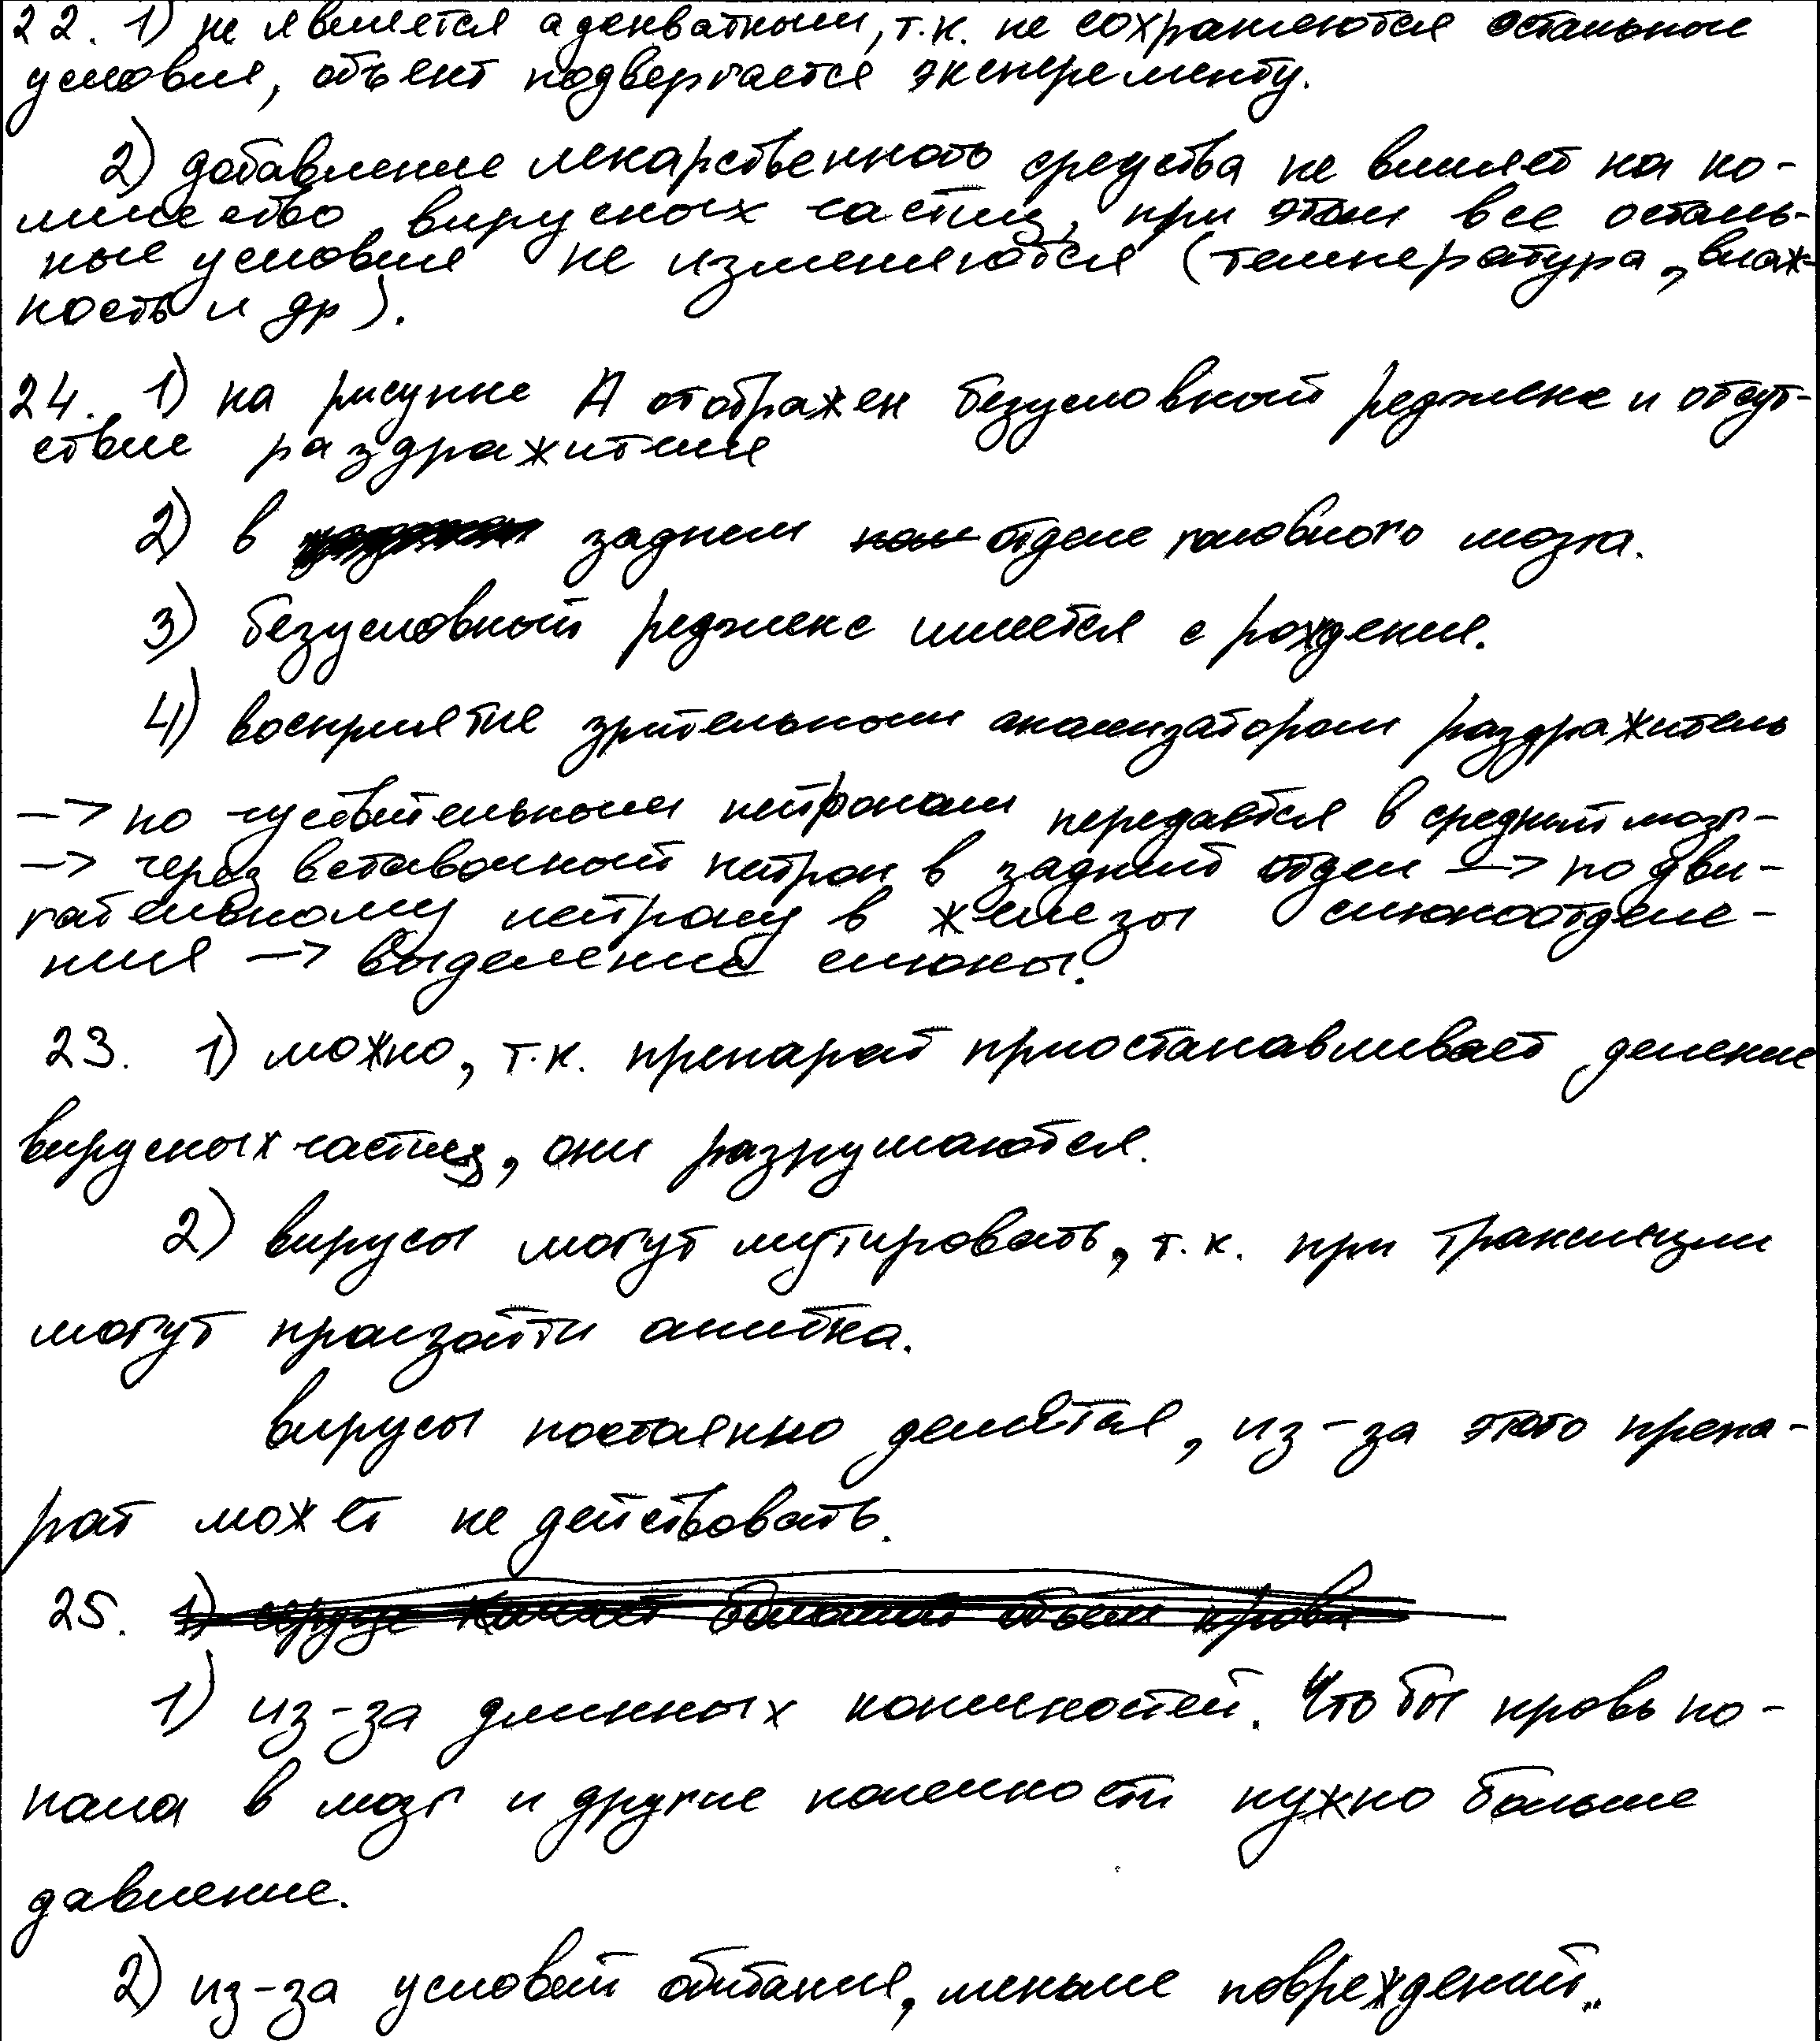 22. 1) не является адекватным, т.к. не сохраняются остальные
условия, объект подвергается эксперементу.
2) добавление лекарственного средства не влияет на ко-
личество вирусных частиц, при этом все осталь-
ные условия не изменяются (температура, влаж-
ность и др).
24. 1) на рисунке А отображен безусловный рефлекс и отсут-
ствие раздражителя
2) в заднем отделе головного мозга.
3) безусловный рефлекс имеется с рождения.
4) восприятие зрительным анализатором раздражитель
-> по чуствительным нейронам передаётся в средний мозг-
-> через вставочный нейрон в задний отдел -> по дви-
гательному нейрону в железы слюноотделе-
ния -> выделение слюны.
23. 1) можно, т.к. препарат приостанавливает деление
вирусных частиц, они разрушаются.
2) вирусы могут мутировать, т.к. при трансляции
могут произойти ошибка.
вирусы постоянно делятся, из-за этого препа-
рат может не действовать.
25.
1) из-за длинных конечностей. Чтобы кровь по-
пала в мозг и другие конечности нужно больше
давление.
2) из-за условий обитания, меньше повреждений..